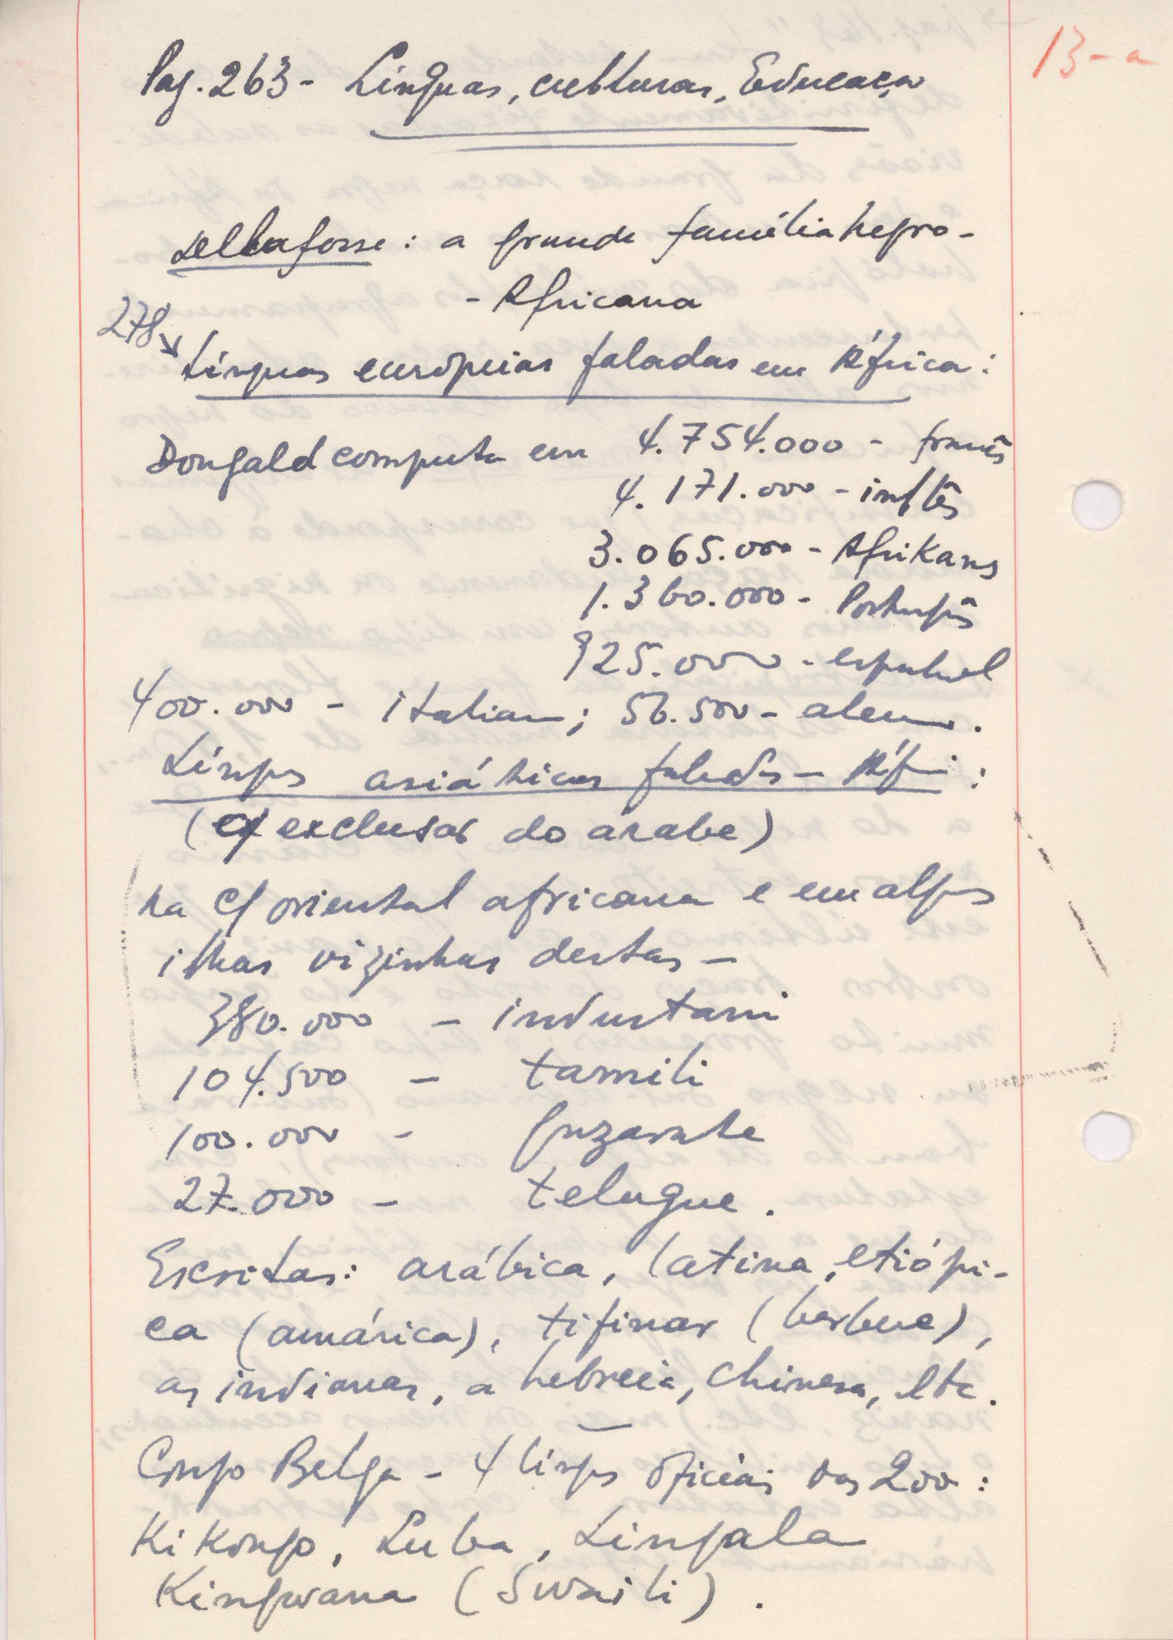 13-a
Pag. 263 - Línguas, culturas, Educação
Dellafosse: a grande família Negro-
- Africana
278
Línguas européias faladas em África:
Dougald computa em 4.754.000 - francês
4.171.000 - inglês
3.065.000 - Afrikans
1.360.000 - Português
925.000 - espanhol
400.000 - italiano; 56.500 - alemão.
Línguas asiáticas faladas - África:
(exclusão do árabe)
na oriental africana e em algumas
ilhas vizinhas destas -
380.000 - industani
104.500 - tamili
100.000 - guzarate
27.000 - telugue.
Escritas: arábica, latina, etiópi-
ca (amárica), tifinar (berbere),
as indianas, a hebreia, chinesa, etc.
Congo Belga - 4 línguas oficiais das 200:
Kikongo, Luba, Lingala
Kingwana (Swaili).